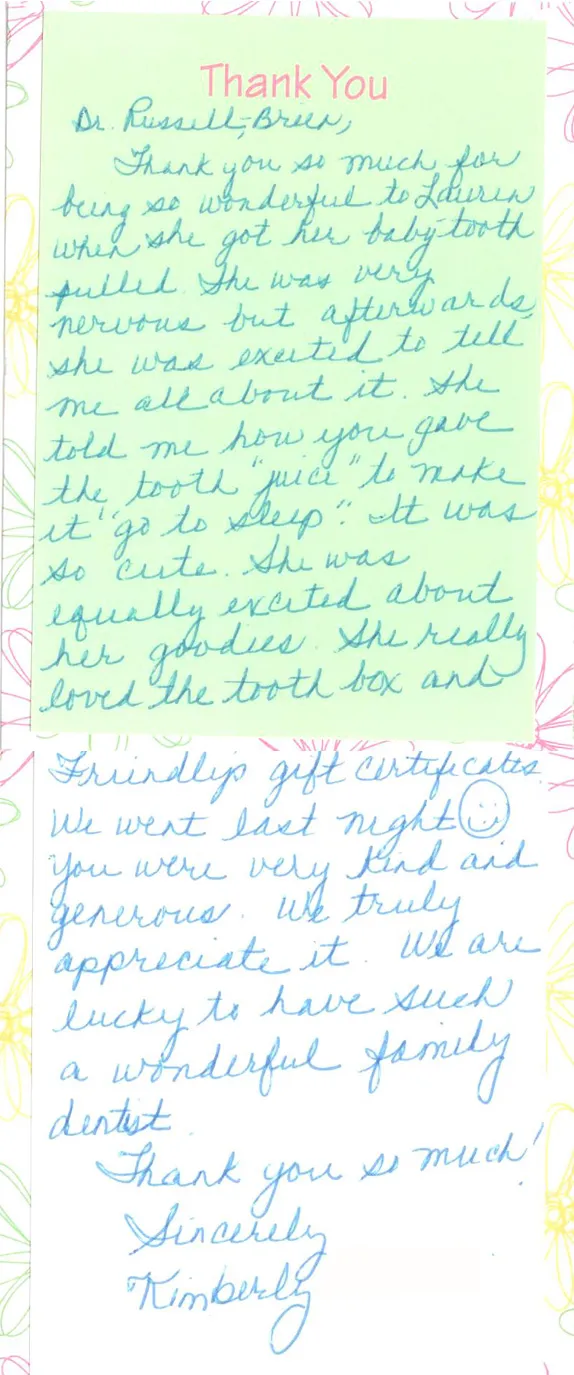 Thank You
Dr. Russell-Brien,
Thank you so much for
being so wonderful to Lauren
when she got her baby tooth
pulled. She was very
nervous but afterwards,
she was excited to tell
me all about it. She
told me how you gave
the tooth "juice" to make
it "go to sleep". It was
so cute. She was
equally excited about
her goodies. She really
loved the tooth box and
Friendlys gift certificates.
We went last night
You were very kind and
generous. We truly
appreciate it. We are
lucky to have such
a wonderful family
dentist
Thank you so much!
Sincerely
Kimberly